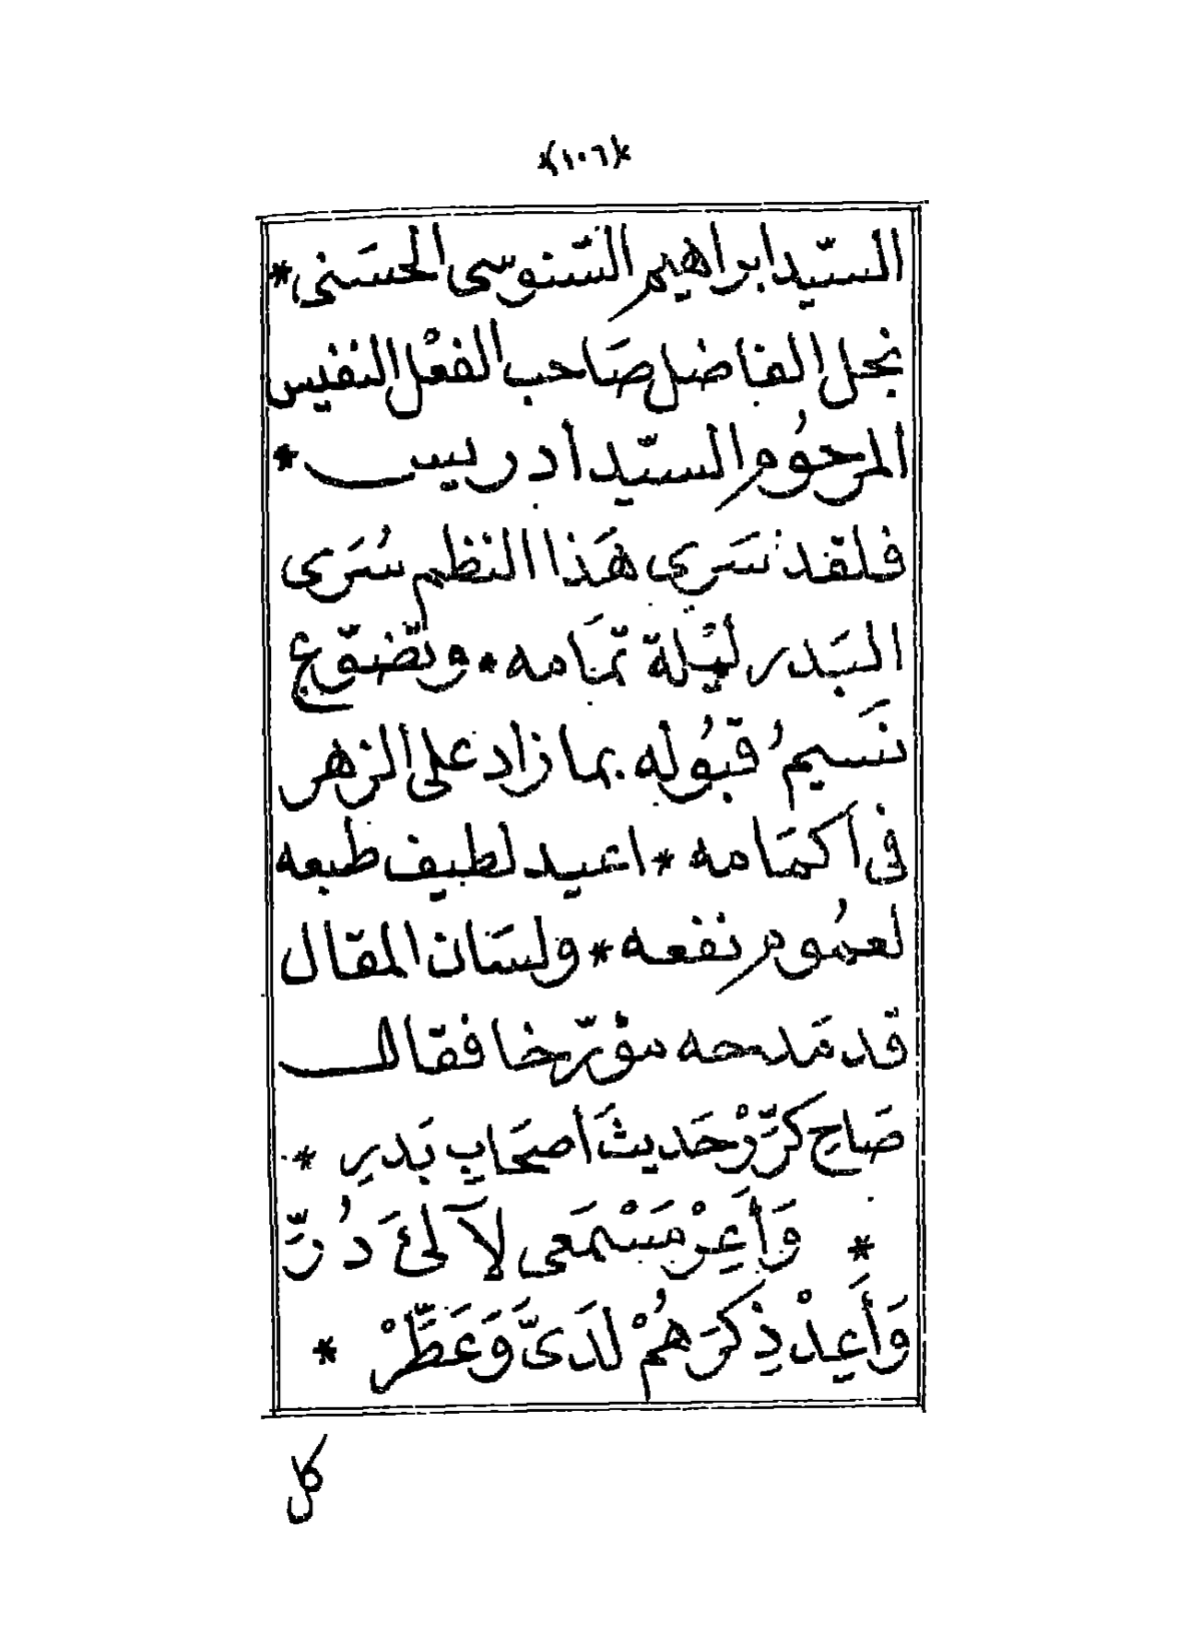 *(١٠٦)*
السّيد ابراهيم السّنوسى الحسَنى *
نجل الفاضل صَاحب الفعْل النفيس
المرحوُم السيّد أدريس *
فلقد سَرى هَذا النظم سُرَى
البَدر ليْلة تمّامه * وتضّوّع
نَسيمُ قبُوله بما زاد على الزهر
فى أكمَامه * اعيد لطيف طبعه
لعمُوم نفعه * ولسَان المقال
قد مَدحه مؤرّخا فقال
صَاحِ كرِّرْ حَديثَ أصحَابِ بَدرِ *
* وَأَعِرْ مَسْمَعى لآلئَ دُرِّ
وَأَعِدْ ذِكرَهُمْ لدَىَّ وَعَطِّرْ *
كل